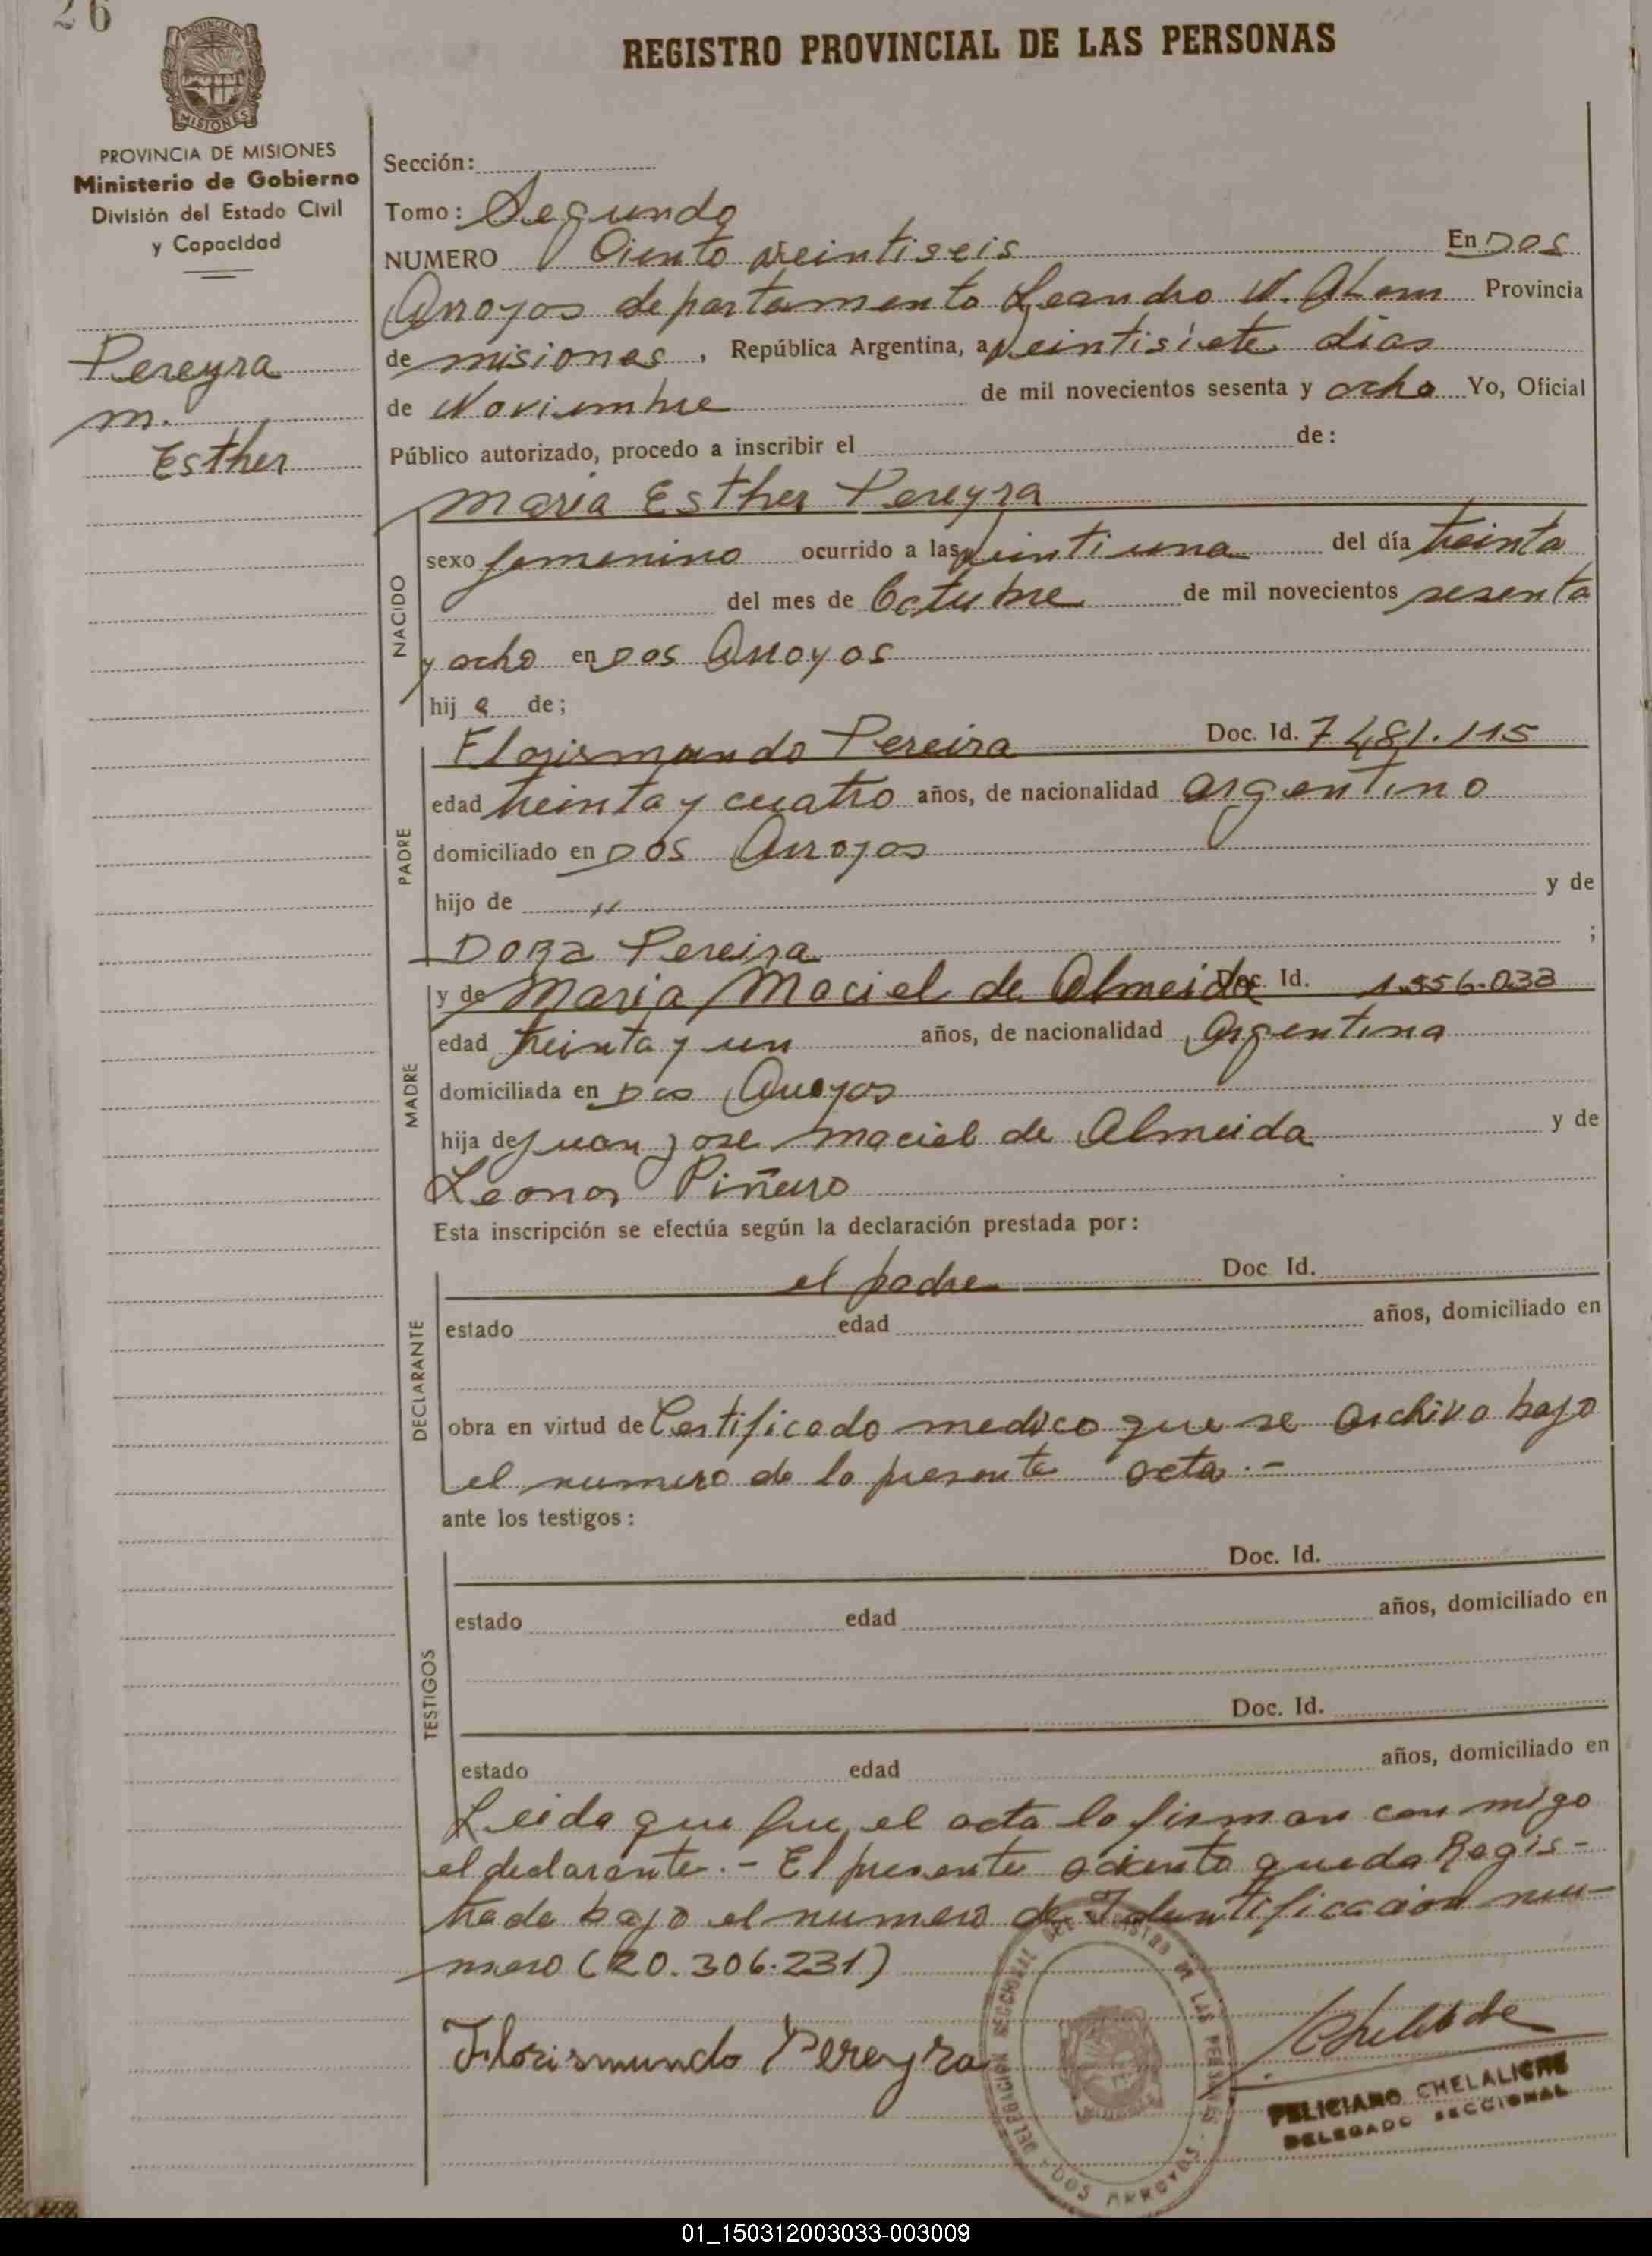 26
REGISTRO PROVINCIAL DE LAS PERSONAS
MISIONES
PROVINCIA DE MISIONES
Ministerio de Gobierno
División del Estado Civil
y Capacidad
Pereyra
M.
Esther
Sección:
Tomo: Segundo
NUMERO Ciento veintiseis En Dos
Arroyos departamento Leandro N. Alem Provincia
de misiones, República Argentina, a veintisiete dias
de Noviembre de mil novecientos sesenta y ocho Yo, Oficial
Público autorizado, procedo a inscribir el de:
Maria Esther Pereyra
NACIDO
sexo femenino ocurrido a las veintiuna del día treinta
del mes de Octubre de mil novecientos sesenta
y ocho en Dos Arroyos
hij a de;
PADRE
Florismundo Pereira Doc. Id. 7481.115
edad treinta y cuatro años, de nacionalidad argentino
domiciliado en Dos Arroyos
hijo de " y de
Dora Pereira ;
MADRE
y de Maria Maciel de Almeida Doc. Id. 1.556.033
edad treinta y un años, de nacionalidad Argentina
domiciliada en Dos Arroyos
hija de Juan Jose Maciel de Almeida y de
Leonor Piñeiro
Esta inscripción se efectúa según la declaración prestada por:
DECLARANTE
el padre Doc. Id.
estado edad años, domiciliado en
obra en virtud de Certificado medico que se archiva bajo
el numero de la presente acta.-
ante los testigos:
TESTIGOS
Doc. Id.
estado edad años, domiciliado en
Doc. Id.
estado edad años, domiciliado en
Leida que fue el acta la firman con migo
el declarante.- El presente asiento queda Regis-
trado bajo el numero de Identificacion nu-
mero (20.306.231)
Florismundo Pereyra
DELEGACION SECCIONAL DEL REGISTRO DE LAS PERSONAS
DOS ARROYOS
FELICIANO CHELALICHE
DELEGADO SECCIONAL
01_150312003033-003009